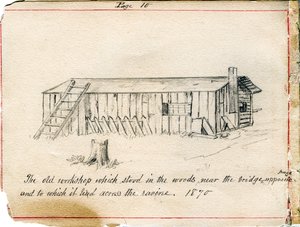 Page 10
The old workshop which stood in the woods near the bridge,
and to which it lead across the ravine. 1870